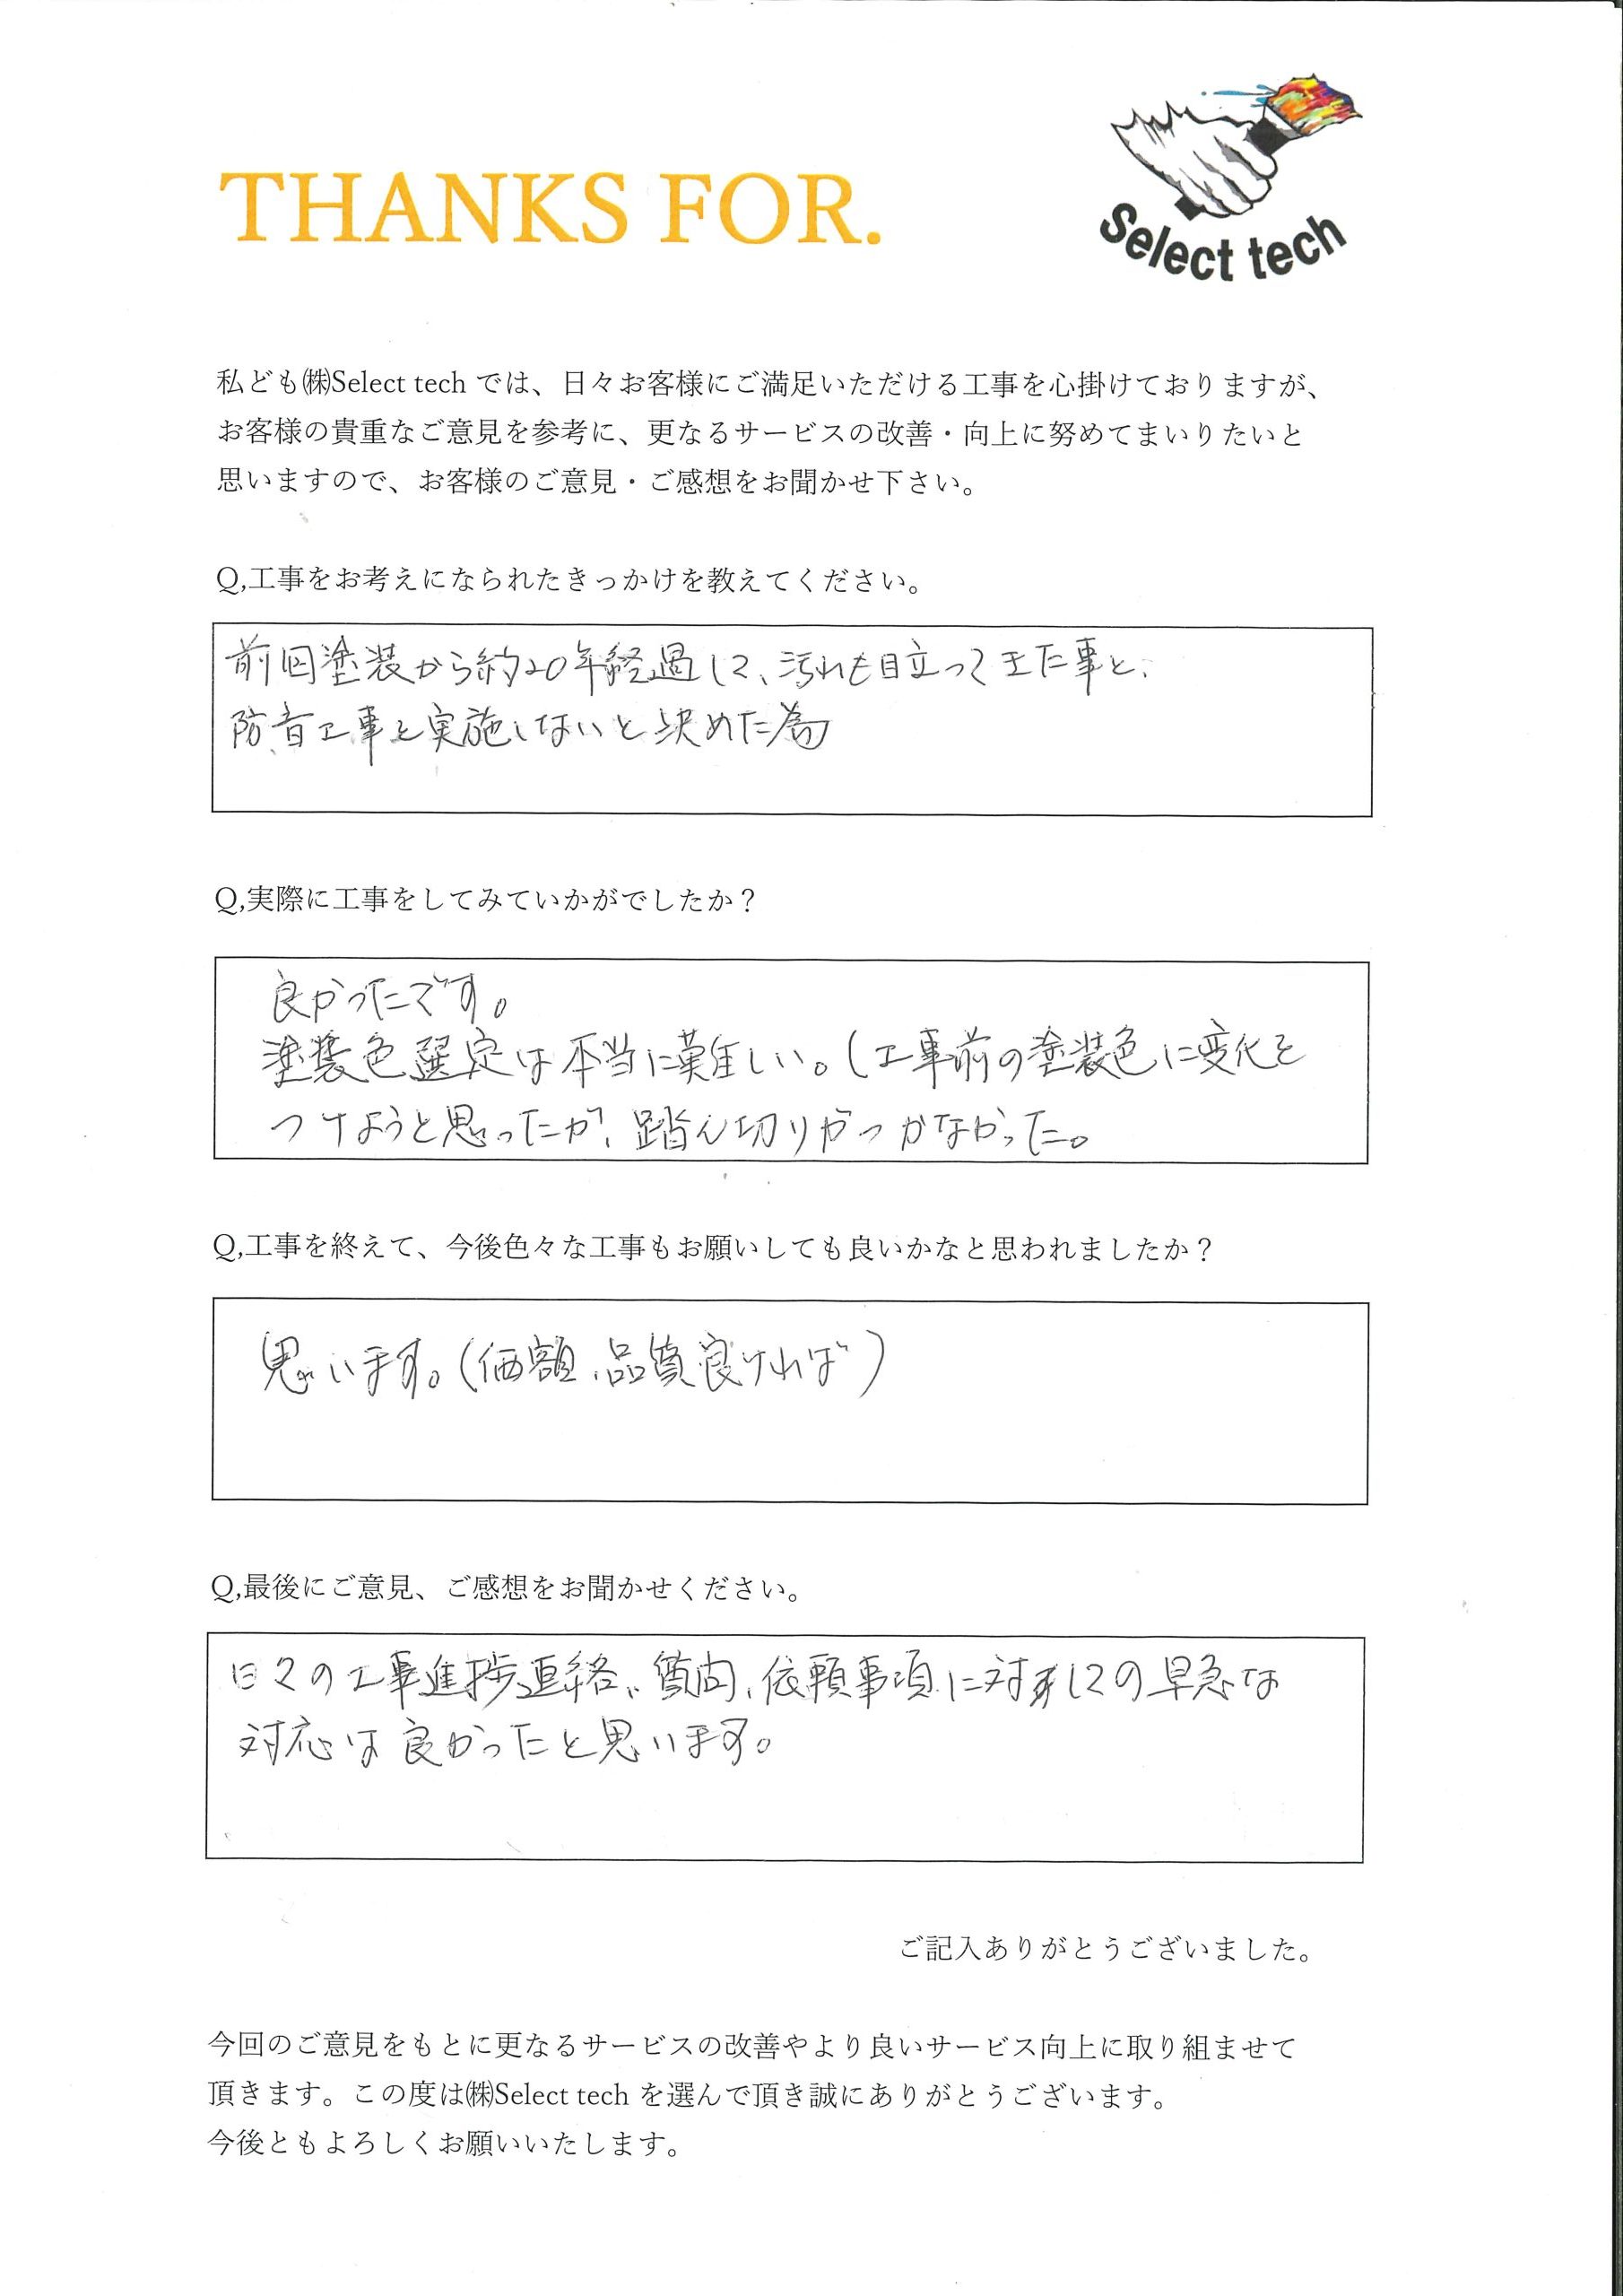 THANKS FOR.
Select tech
私ども㈱Select tech では、日々お客様にご満足いただける工事を心掛けておりますが、
お客様の貴重なご意見を参考に、更なるサービスの改善・向上に努めてまいりたいと
思いますので、お客様のご意見・ご感想をお聞かせ下さい。
Q,工事をお考えになられたきっかけを教えてください。
前回塗装から約20年経過して、汚れも目立ってきた事と、
防音工事を実施しないと決めた為
Q,実際に工事をしてみていかがでしたか？
良かったです。
塗装色選定は本当に難しい。(工事前の塗装色に変化を
つけようと思ったが、踏ん切りがつかなかった。
Q,工事を終えて、今後色々な工事もお願いしても良いかなと思われましたか？
思います。(価額、品質良ければ)
Q,最後にご意見、ご感想をお聞かせください。
日々の工事進捗連絡、質問、依頼事項に対しての早急な
対応は良かったと思います。
ご記入ありがとうございました。
今回のご意見をもとに更なるサービスの改善やより良いサービス向上に取り組ませて
頂きます。この度は㈱Select tech を選んで頂き誠にありがとうございます。
今後ともよろしくお願いいたします。